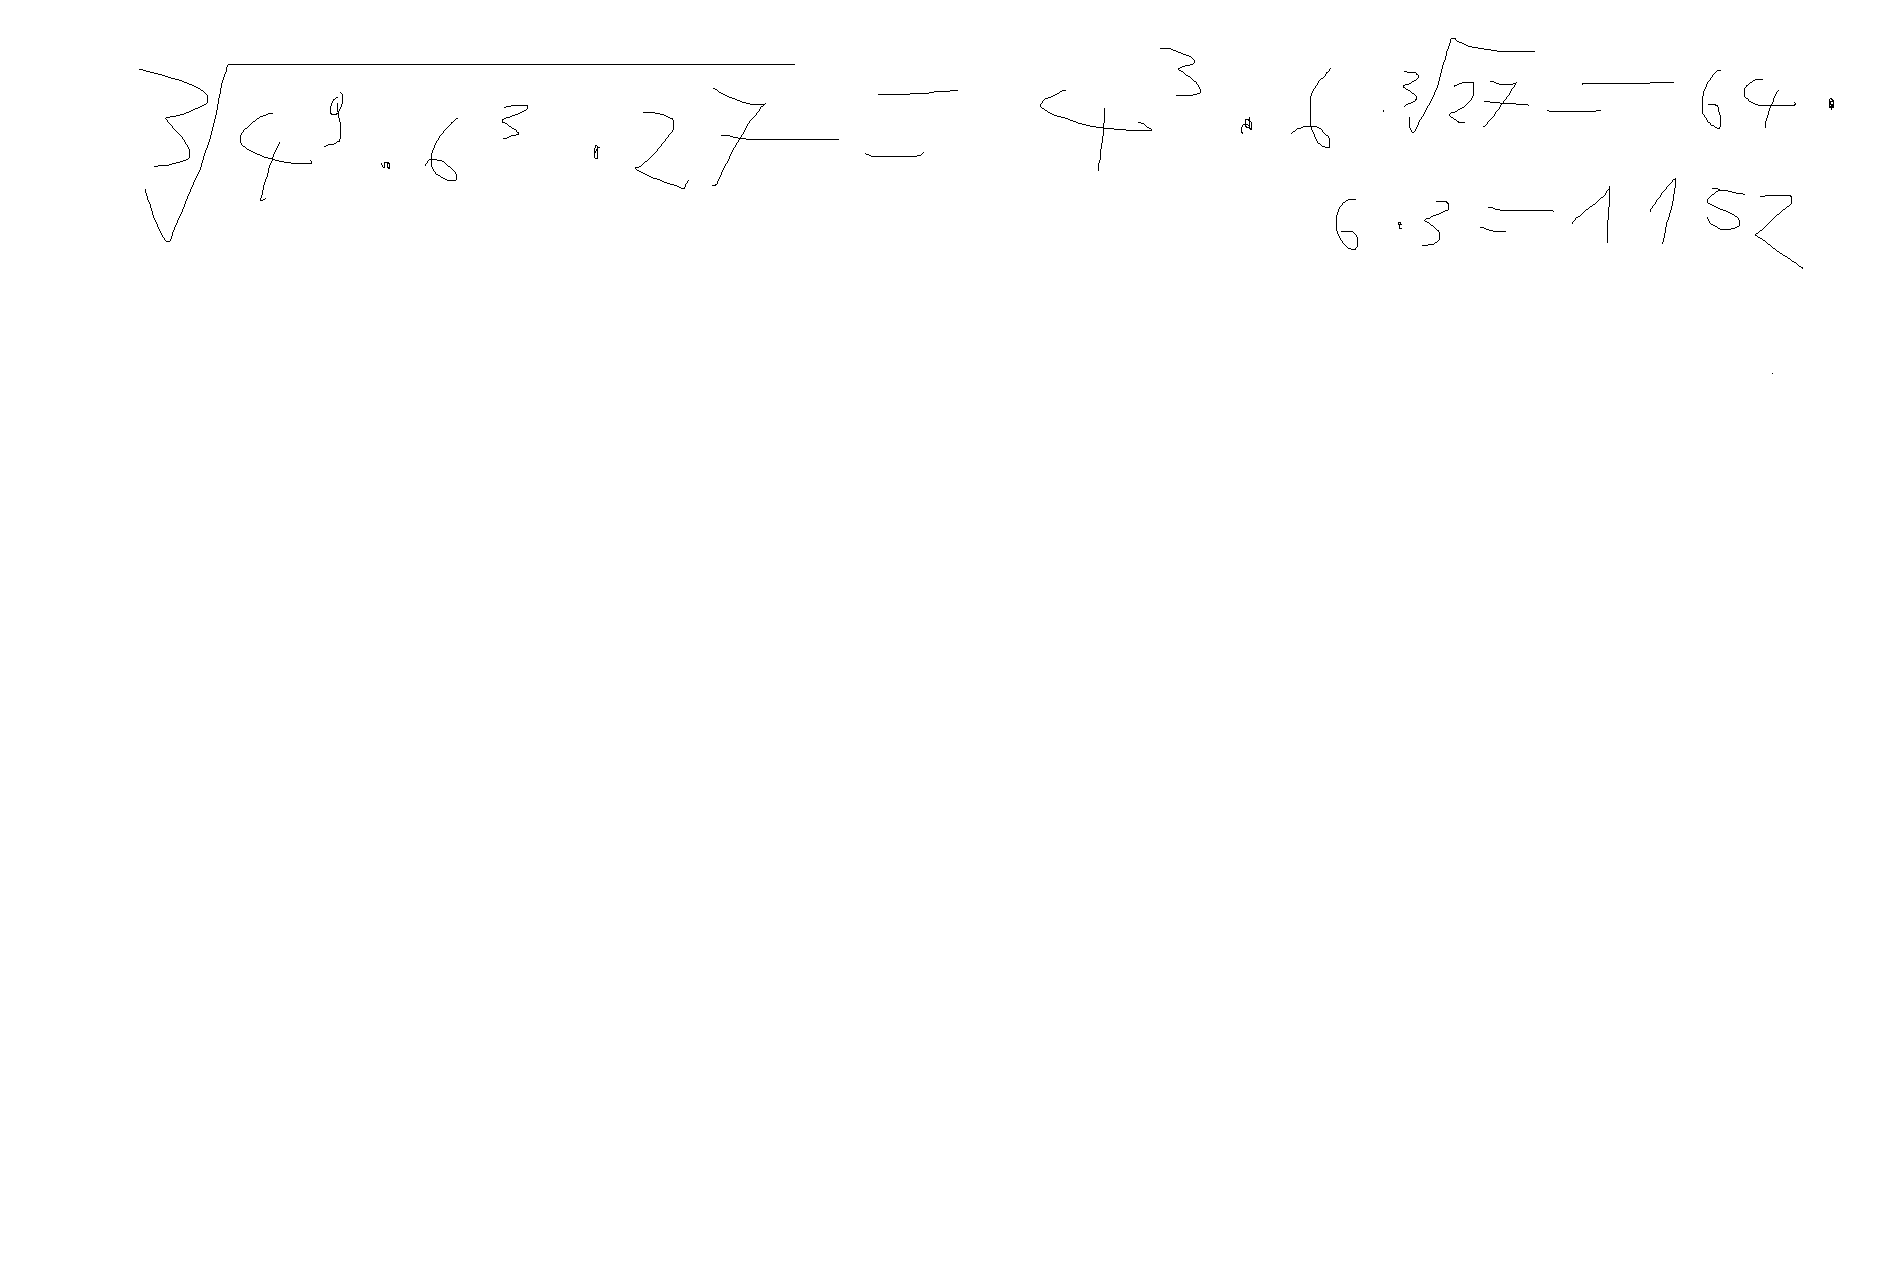 ∛(4⁹ · 6³ · 27) = 4³ · 6 · ∛27 = 64 ·
6 · 3 = 1152